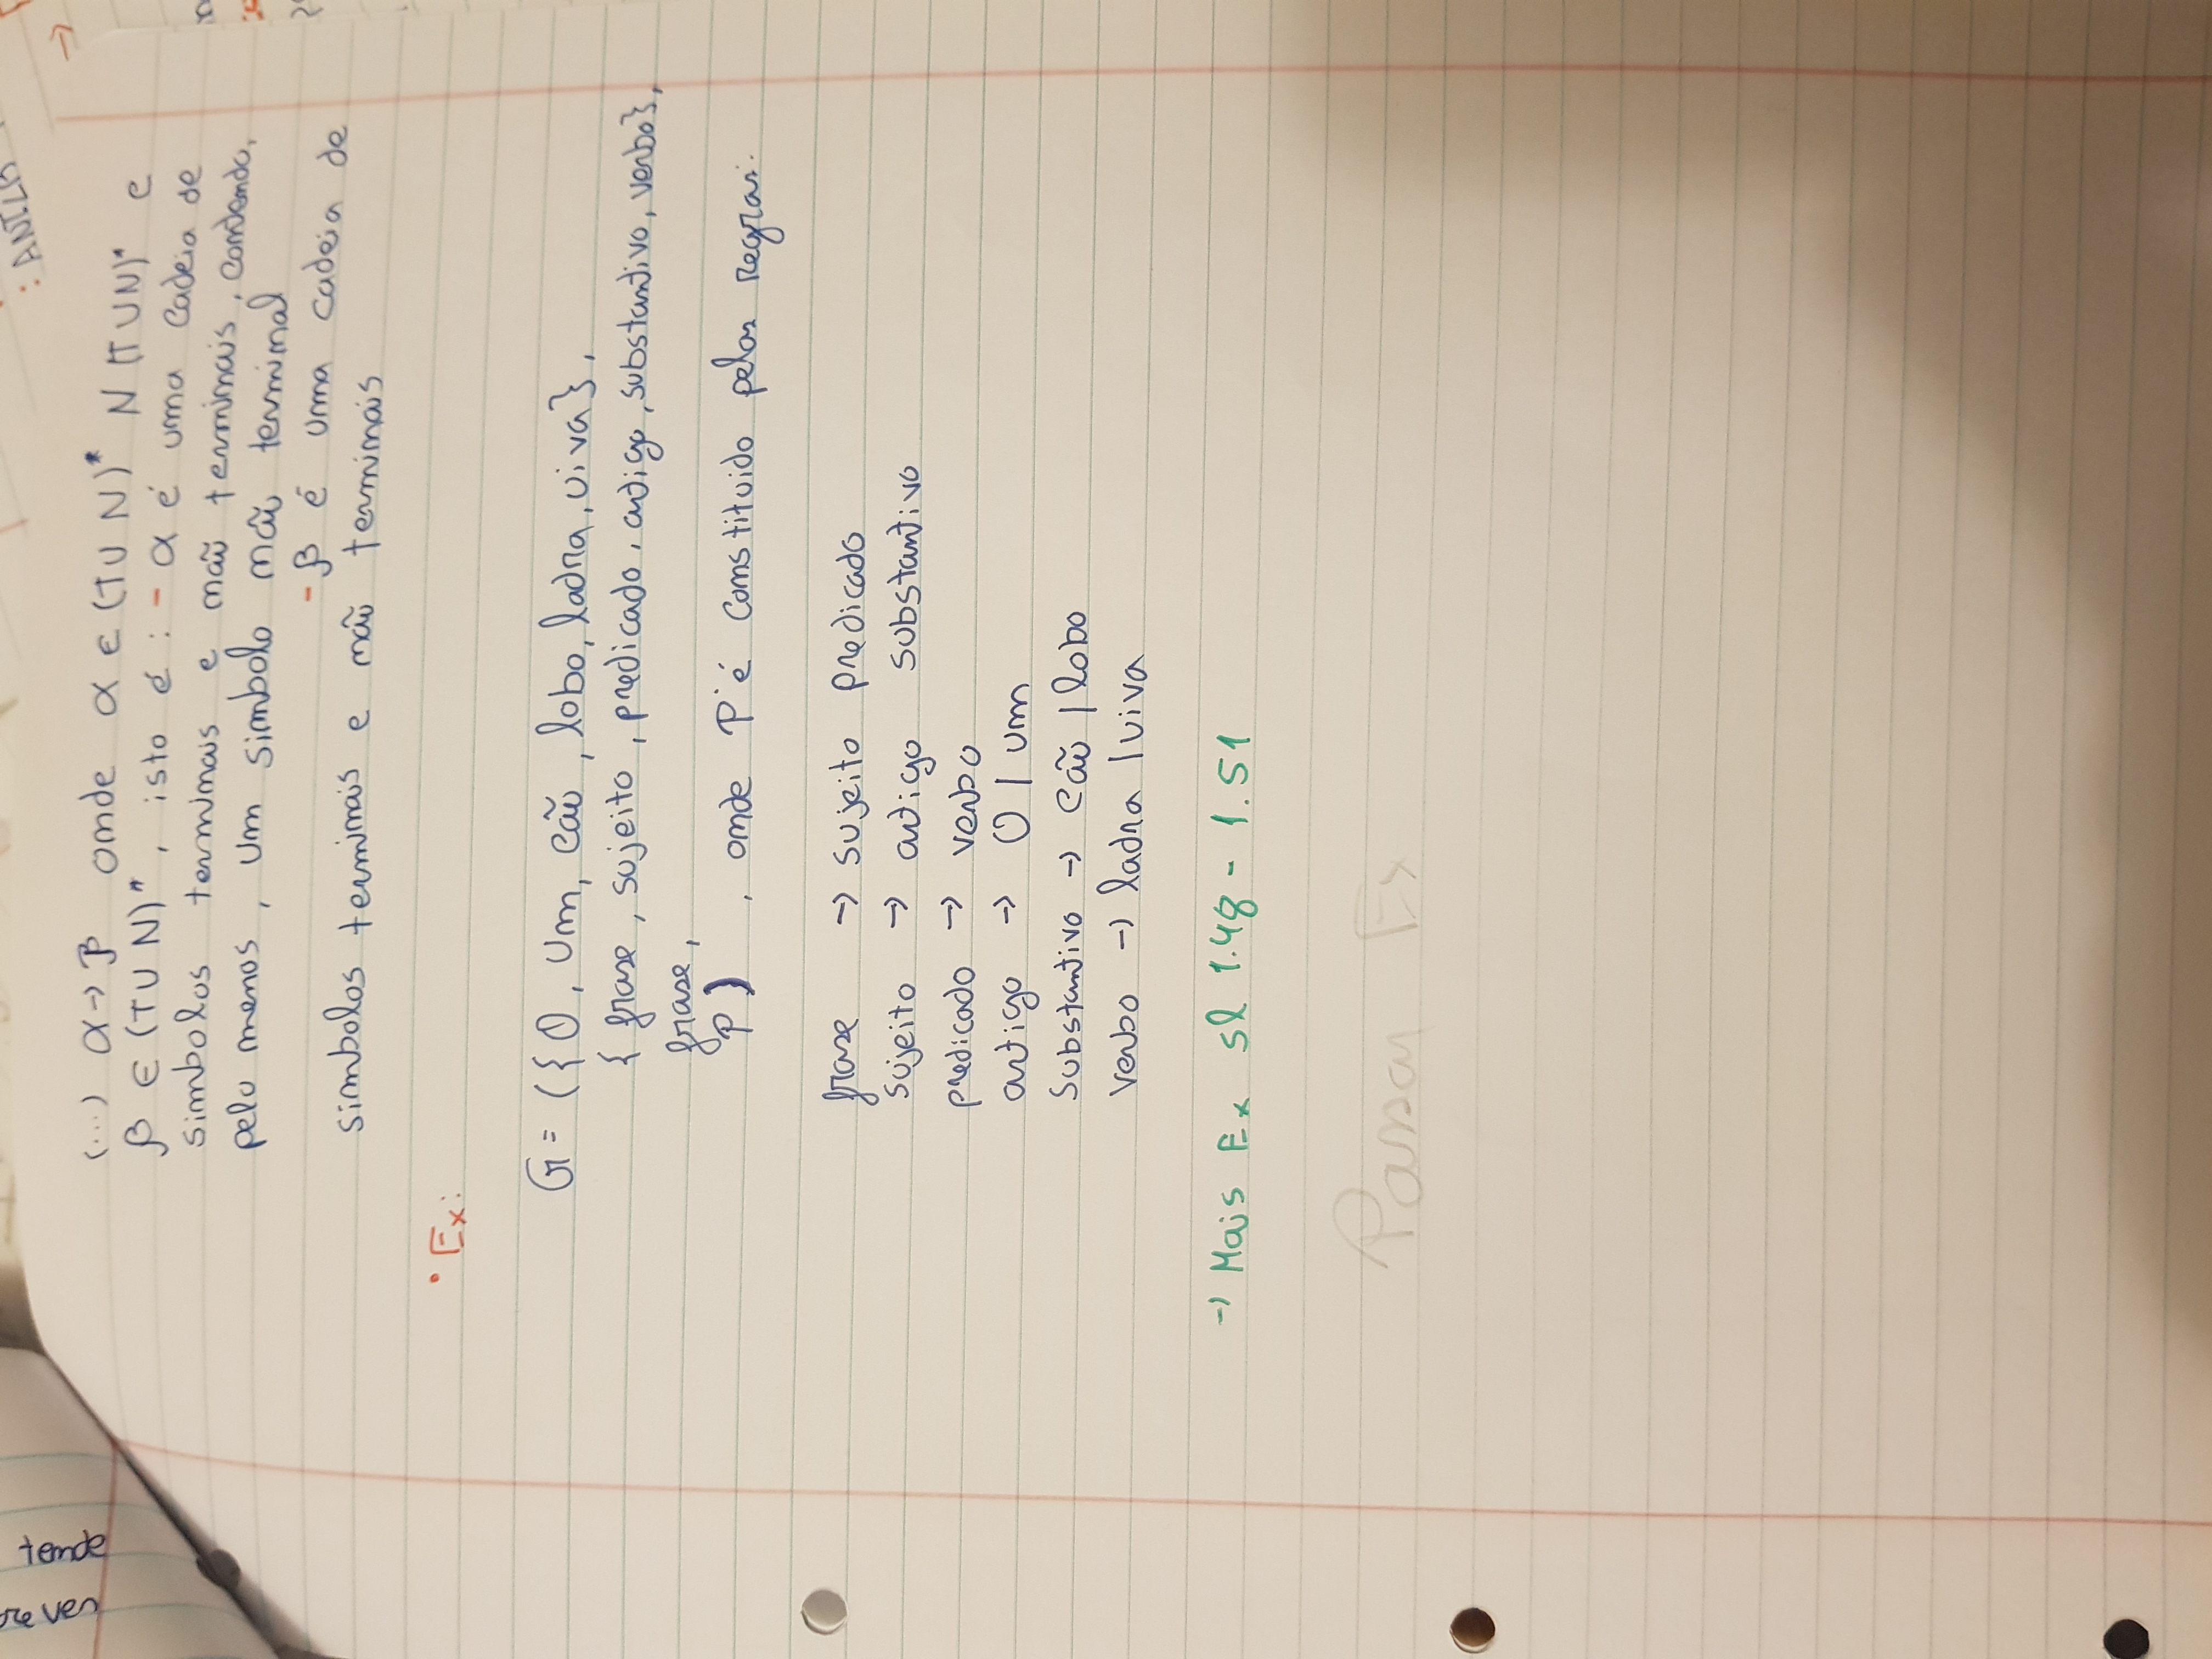 tende
: ANTLR
→
(...) α → β onde α ∈ (T U N)* N (T U N)* e
β ∈ (T U N)*, isto é : - α é uma cadeia de
simbolos terminais e não terminais, contendo,
pelo menos, um simbolo não terminal
- β é uma cadeia de
simbolos terminais e não terminais
• Ex:
G = ({O, um, cão, lobo, ladra, uiva},
{ frase, sujeito, predicado, artigo, substantivo, verbo},
frase,
P) , onde P é constituido pelas regras:
frase → sujeito predicado
sujeito → artigo substantivo
predicado → verbo
artigo → O | um
substantivo → cão | lobo
verbo → ladra | uiva
→ Mais Ex sl 1.48 - 1.51
Passar Ex